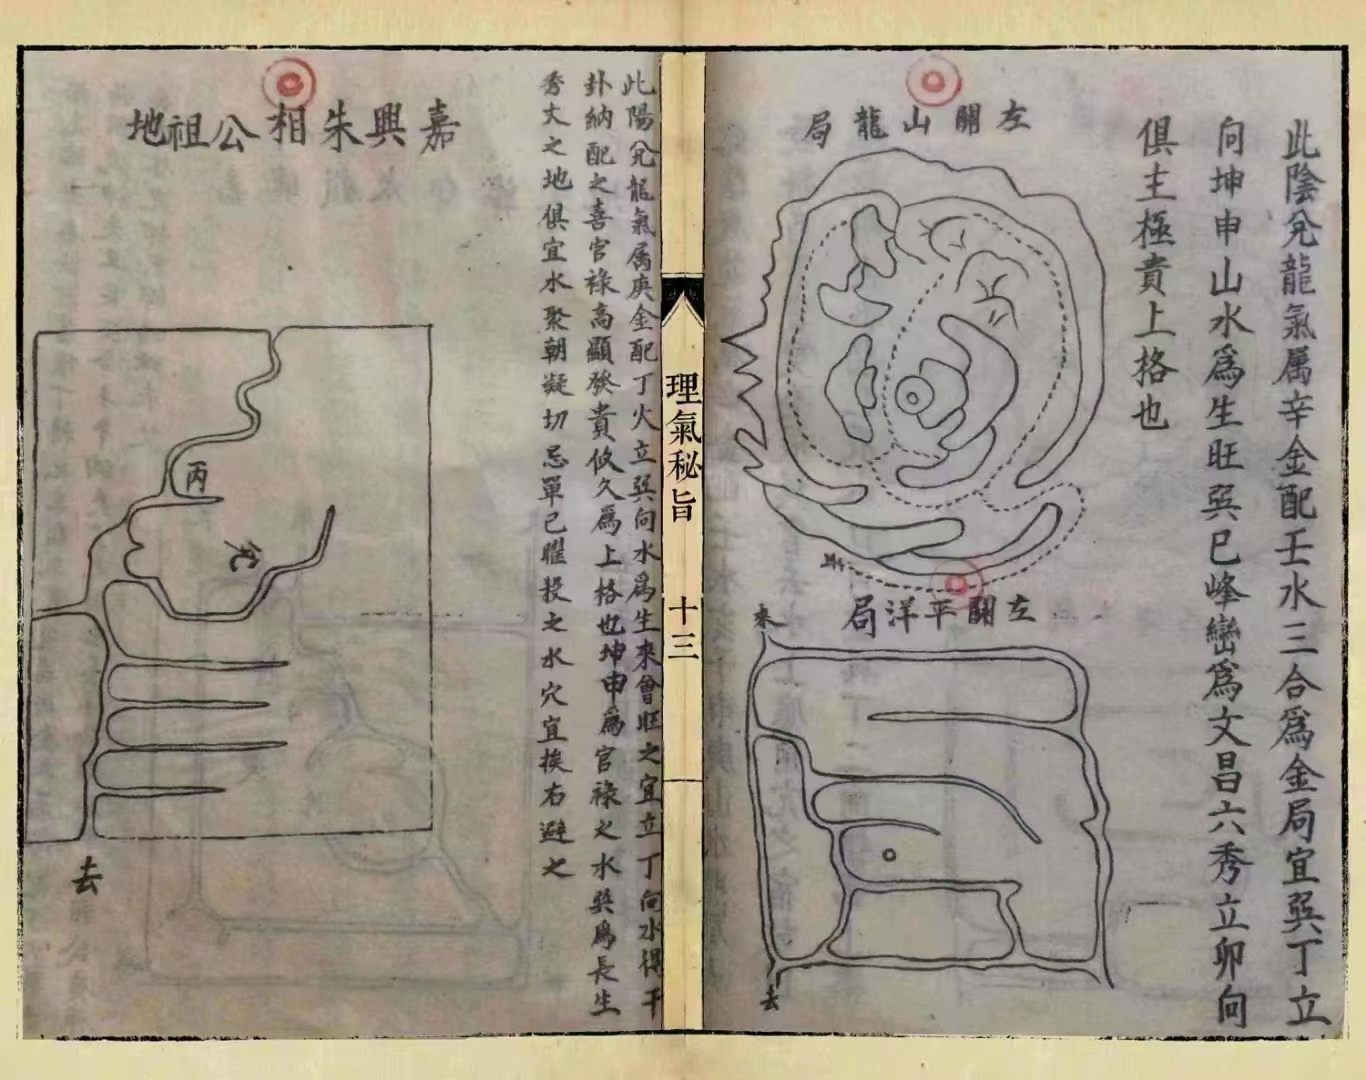 此陰兌龍氣属辛金配壬水三合爲金局宜巽丁立
向坤申山水爲生旺巽巳峰巒爲文昌六秀立卯向
俱主極貴上格也
左關山龍局
左關平洋局
來
去
理氣秘旨
十三
此陽兌龍氣属庚金配丁火立巽向水爲生來會旺之宜立丁向水得干
卦納配之喜官祿高顯發貴攸久爲上格也坤申爲官祿之水巽爲長生
秀丈之地俱宜水聚朝凝切忌單巳曜殺之水穴宜挨右避之
嘉興朱相公祖地
丙
兌
去